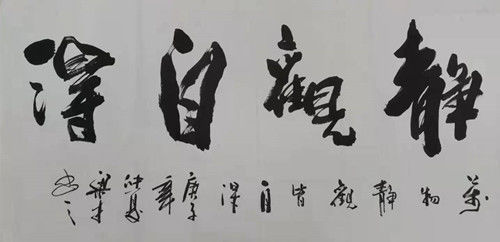 靜觀自得
萬物靜觀皆自得庚子年仲夏